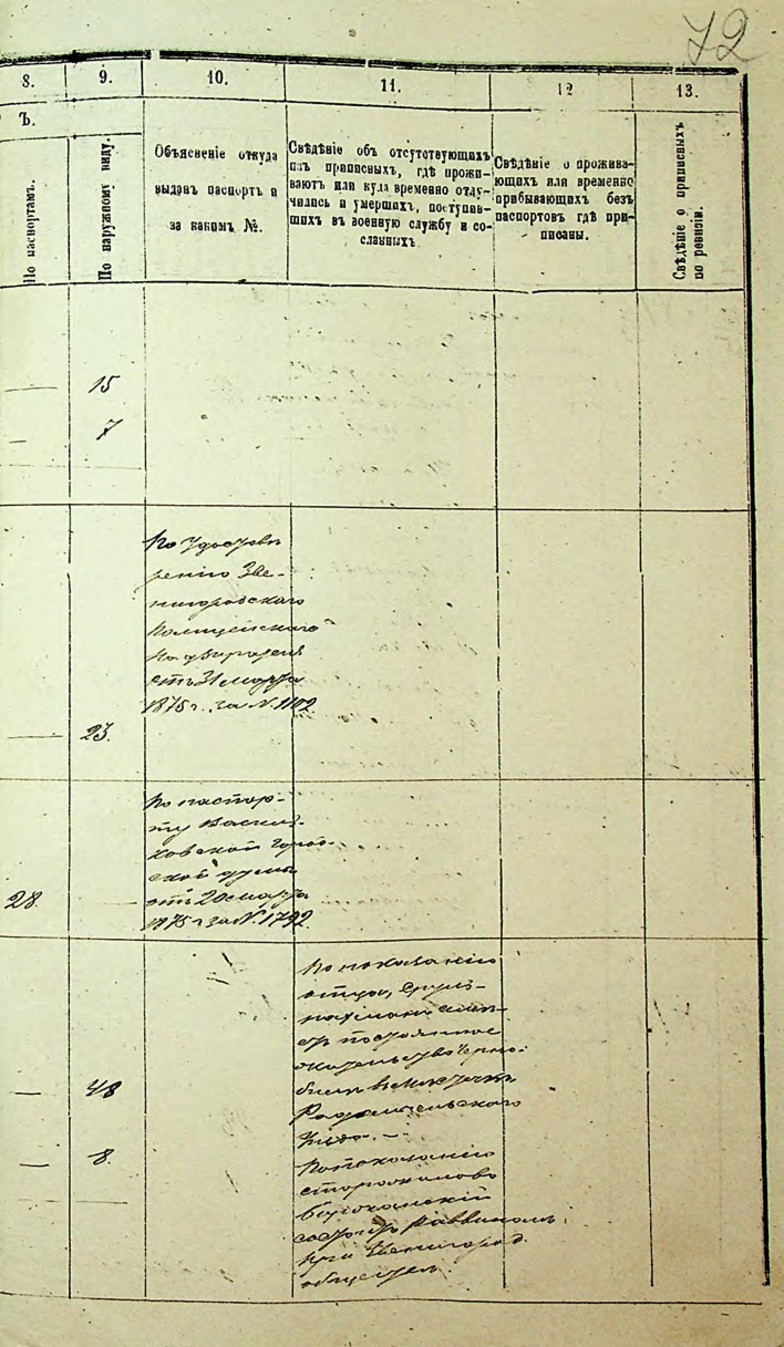 72
8. 9. 10. 11. 12 13.
Ъ.
По паспортамъ.
По наружному виду.
Объясненіе откуда
выданъ паспортъ и
за какимъ №.
Свѣдѣніе объ отсутствующихъ
изъ приписныхъ, гдѣ прожи-
ваютъ или куда временно отлу-
чились и умершихъ, поступив-
шихъ въ военную службу и со-
сланныхъ
Свѣдѣніе о прожива-
ющихъ или временно
прибывающихъ безъ
паспортовъ гдѣ при-
писаны.
Свѣдѣніе о приписныхъ
по ревизіи.
— 15
— 7
По удостовѣ
ренію Зве-
нигородскаго
Полицейскаго
Надзирателя
отъ 31 марта
1875 г. за N. 1102
— 23.
По паспор-
ту Василь
ковской город
ской думы
28. — отъ 20 марта
1875 г за N. 1792
По показанію
отца,
постоянное
жительство Черно-
— 48 быль въ мѣстечкѣ
Радомысльскаго
уѣзда. —
— 8. По показанію
—
состоитъ Раввиномъ
при Звенигород.
обществѣ.